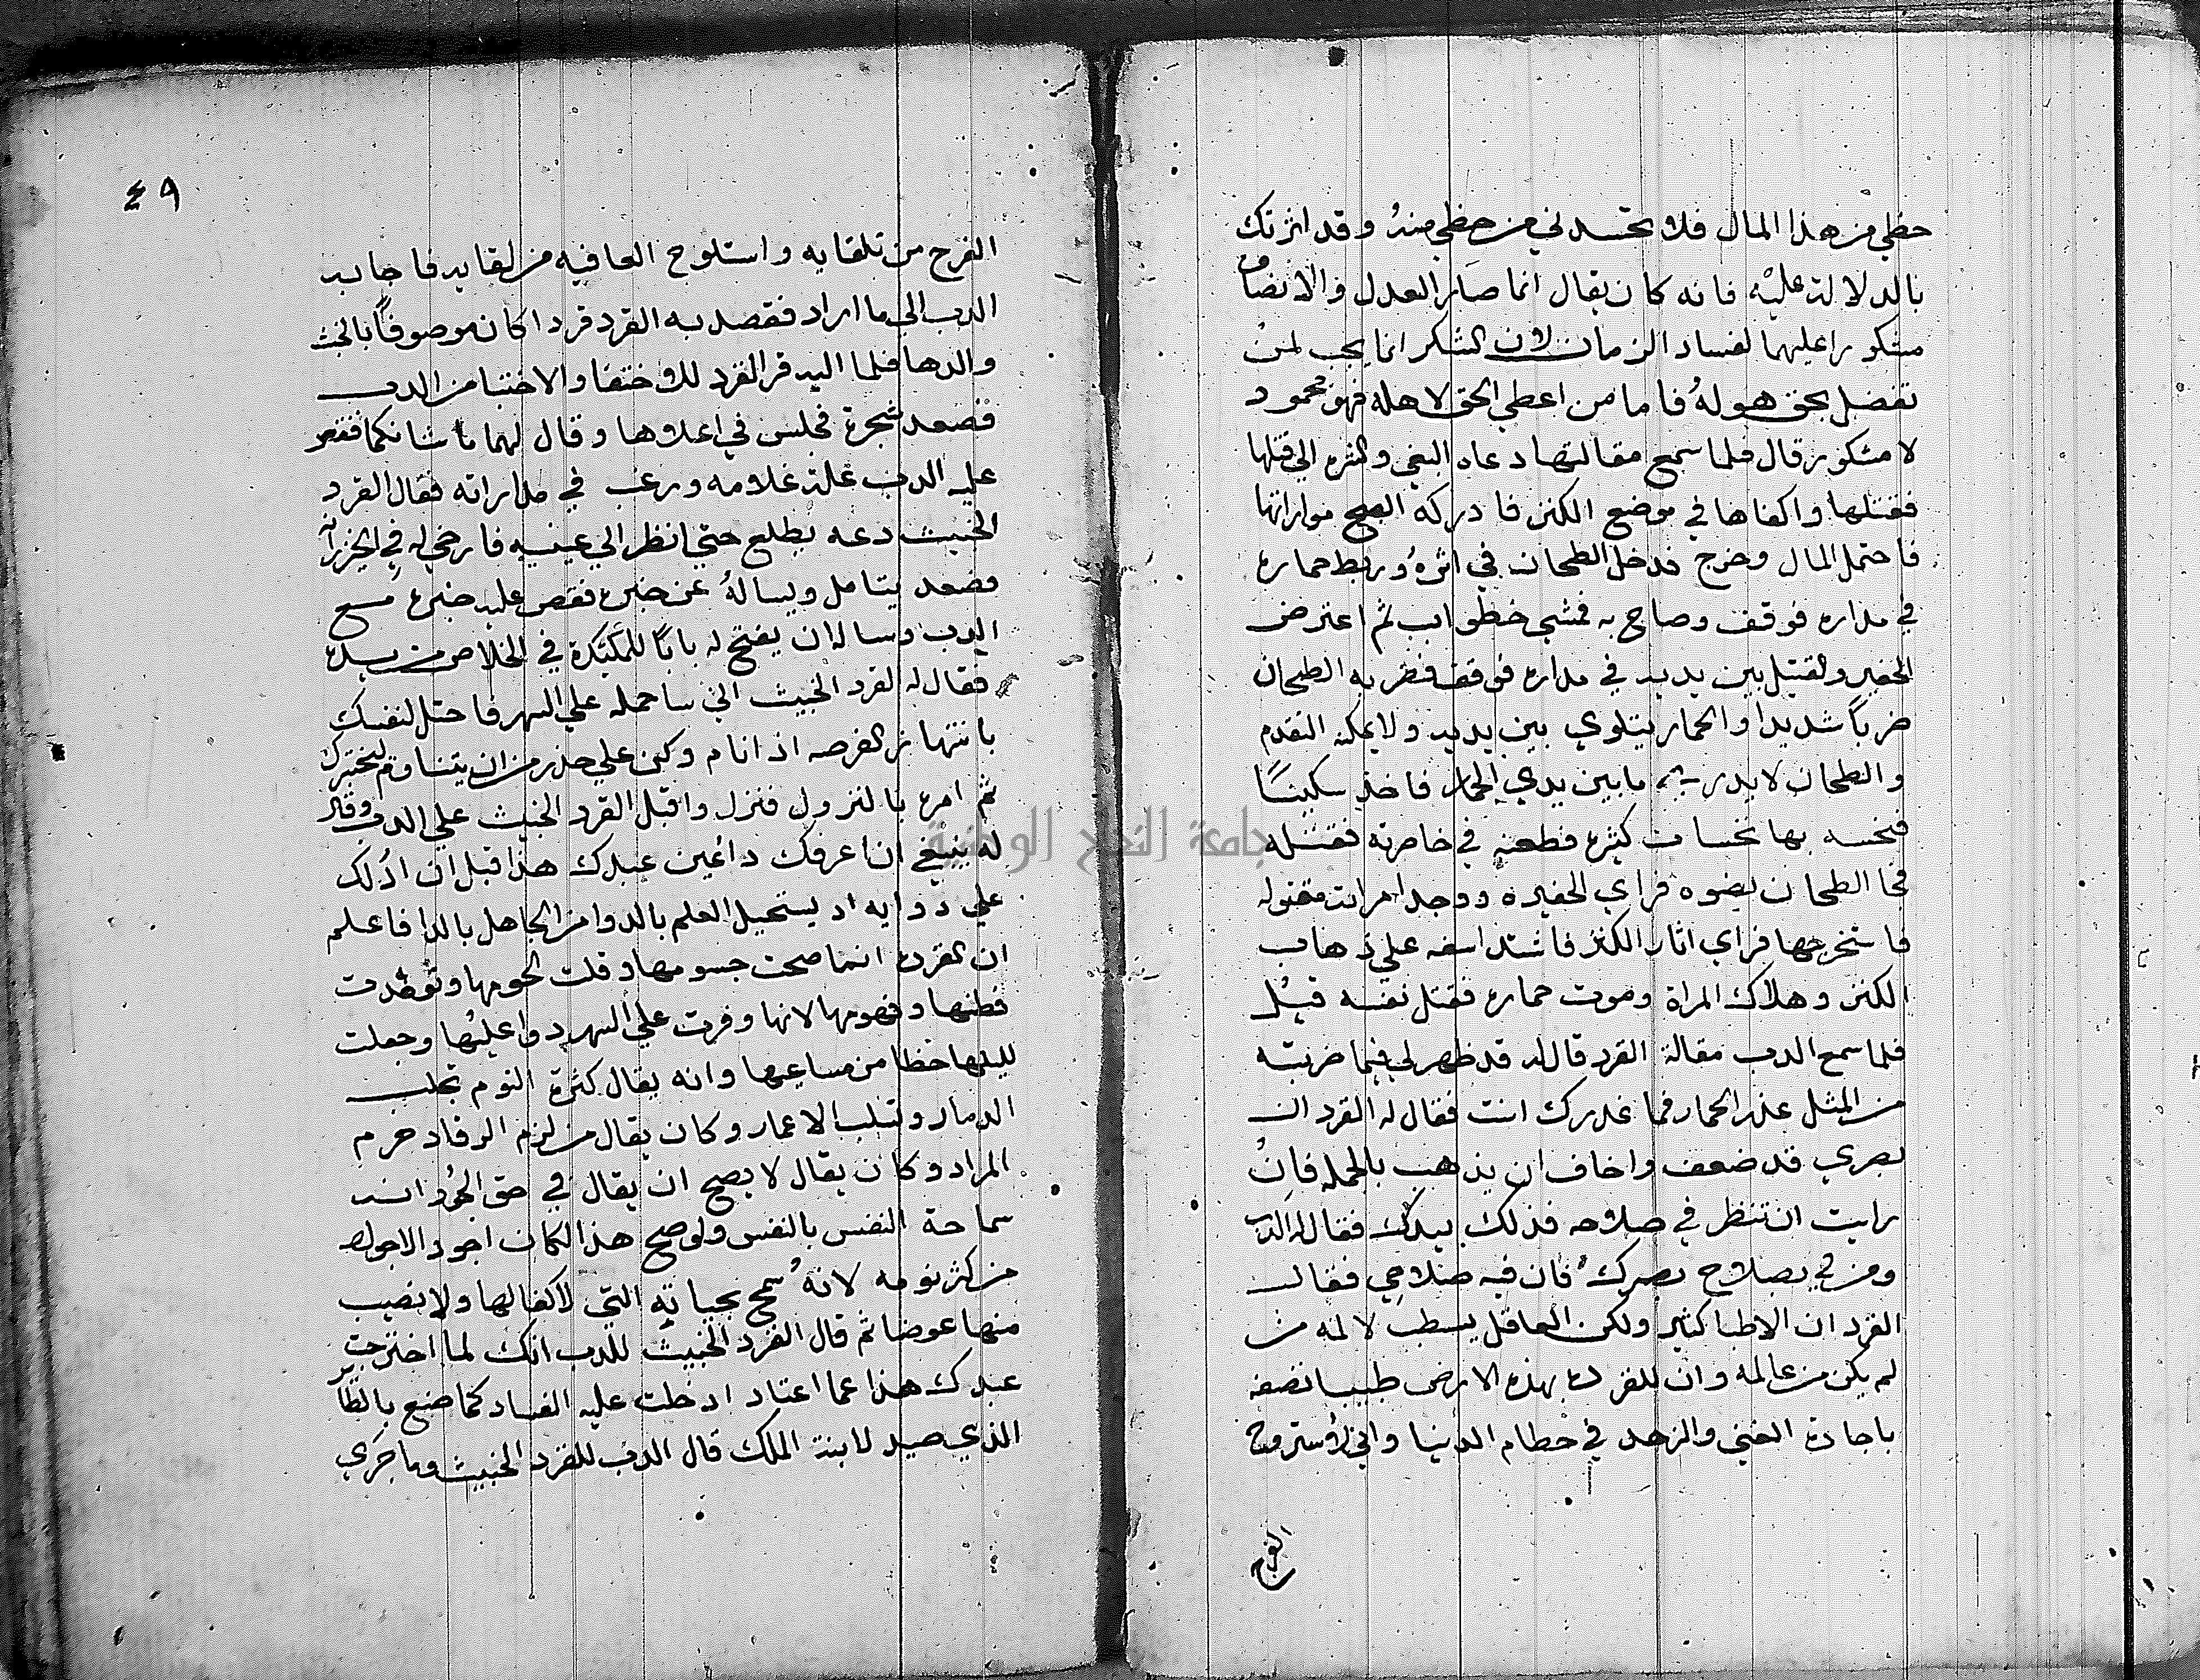 حظي من هذا المال فلا تحسدني عن حظي منه وقد اثرتك
بالدلالة عليه فانه كان يقال انما صار العدل والانصاف
مشكورا عليهما لفساد الزمان لان الشكر انما يجب لمن
تفضل بحق هو له فاما من اعطي الحق لاهله فهو محمود
لا مشكور قال فلما سمع مقالتها دعاه البغي والشره الي قتلها
فقتلها واكفاها في موضع الكنز فادركه الصبح مواراتها
فاحتمل المال وخرج فدخل الطحان في اثره وربط حماره
في مداره فوقف وصاح به فمشي خطوات ثم اعترض
الحفير والقتيل بين يديه في مداره فوقف فضربه الطحان
ضربا شديدا والحمار يتلوي بين يديه ولا يمكنه التقدم
والطحان لا يدري ما بين يدي الحمار فاخذ سكينا
فنخسه بها نخسات كثيرة فطعنه في خاصرته فقتله
فجا الطحان بضوه فراي الحفيره ووجد امراته مقتوله
فاستخرجها فراي اثار الكنز فاشتد اسفه علي ذهاب
الكنز وهلاك المراة وموت حماره فقتل نفسه قيل
فلما سمع الدب مقالة القرد قال له قد ظهر لي فيما ضربته
من المثل عذر الحمار فما عذرك انت فقال له القرد ان
بصري قد ضعف واخاف ان يذهب بالجمله فان
رايت ان تنظر في صلاحه فذلك بيدك فقال له الدب
ومن لي بصلاح بصرك فان فيه صلاحي فقال
القرد ان الاطبا كثير ولكن العاقل يستطب لالمه من
لم يكن من عالمه وان للقرده بهذه الارض طبيبا نصفه
باجادة الغني والزهد في حطام الدنيا واني لاستروح
الفرج
٤٩
الفرج من تلقايه واستلوح العافيه من لقايه فاجابه
الدب الي ما اراد فقصد به القرد قردا كان موصوفا بالخبث
والدها فلما اليه قر القرد للاختفا والاختبا من الدب
فصعد شجرة فجلس في اعلاها وقال لهما ما شانكما فقص
عليه الدب علة غلامه ورغب في مداراته فقال القرد
الخبيث دعه يطلع حتي انظر الي عينيه فارخي له في الخزرانه
فصعد يتامل ويساله عن خبره فقص عليه خبره مع
الدب وساله ان يفتح له بابا للمكيدة في الخلاص من يده
فقال له القرد الخبيث اني ساحمله علي السهر فاحتل لنفسك
بانتهاز الفرصه اذا نام وكن علي حذر من ان يتناوم ليختبرك
ثم امره بالنزول فنزل واقبل القرد الخبيث علي الدب وقال
له ينبغي ان اعرفك دا عين عبدك هذا قبل ان ادلك
علي دوايه اذ يستحيل العلم بالدوا من الجاهل بالدا فاعلم
ان القردة انما صحت جسومها وقلت لحومها وتوقدت
فطنها وفهومها لانها وفرت علي السهر دواعيها وجعلت
لليلها حظا من مساعيها وانه يقال كثرة النوم تجلب
الدمار وتسلب الاعمار وكان يقال من لزم الرقاد حرم
المراد وكان يقال لا يصح ان يقال في حق الجود انه
سماحة النفس بالنفس ولو صح هذا لكان اجود الاجواد
من كثر نومه لانه سمح بحياته التي لا كفا لها ولا يصيب
منها عوضا ثم قال القرد الخبيث للدب انك لما اخرجت
عبدك هذا عما اعتاد ادخلت عليه الفساد كما صنع بالطاير
الذي صيد لابنة الملك قال الدب للقرد الخبيث وما جري
جامعة النجاح الوطنية